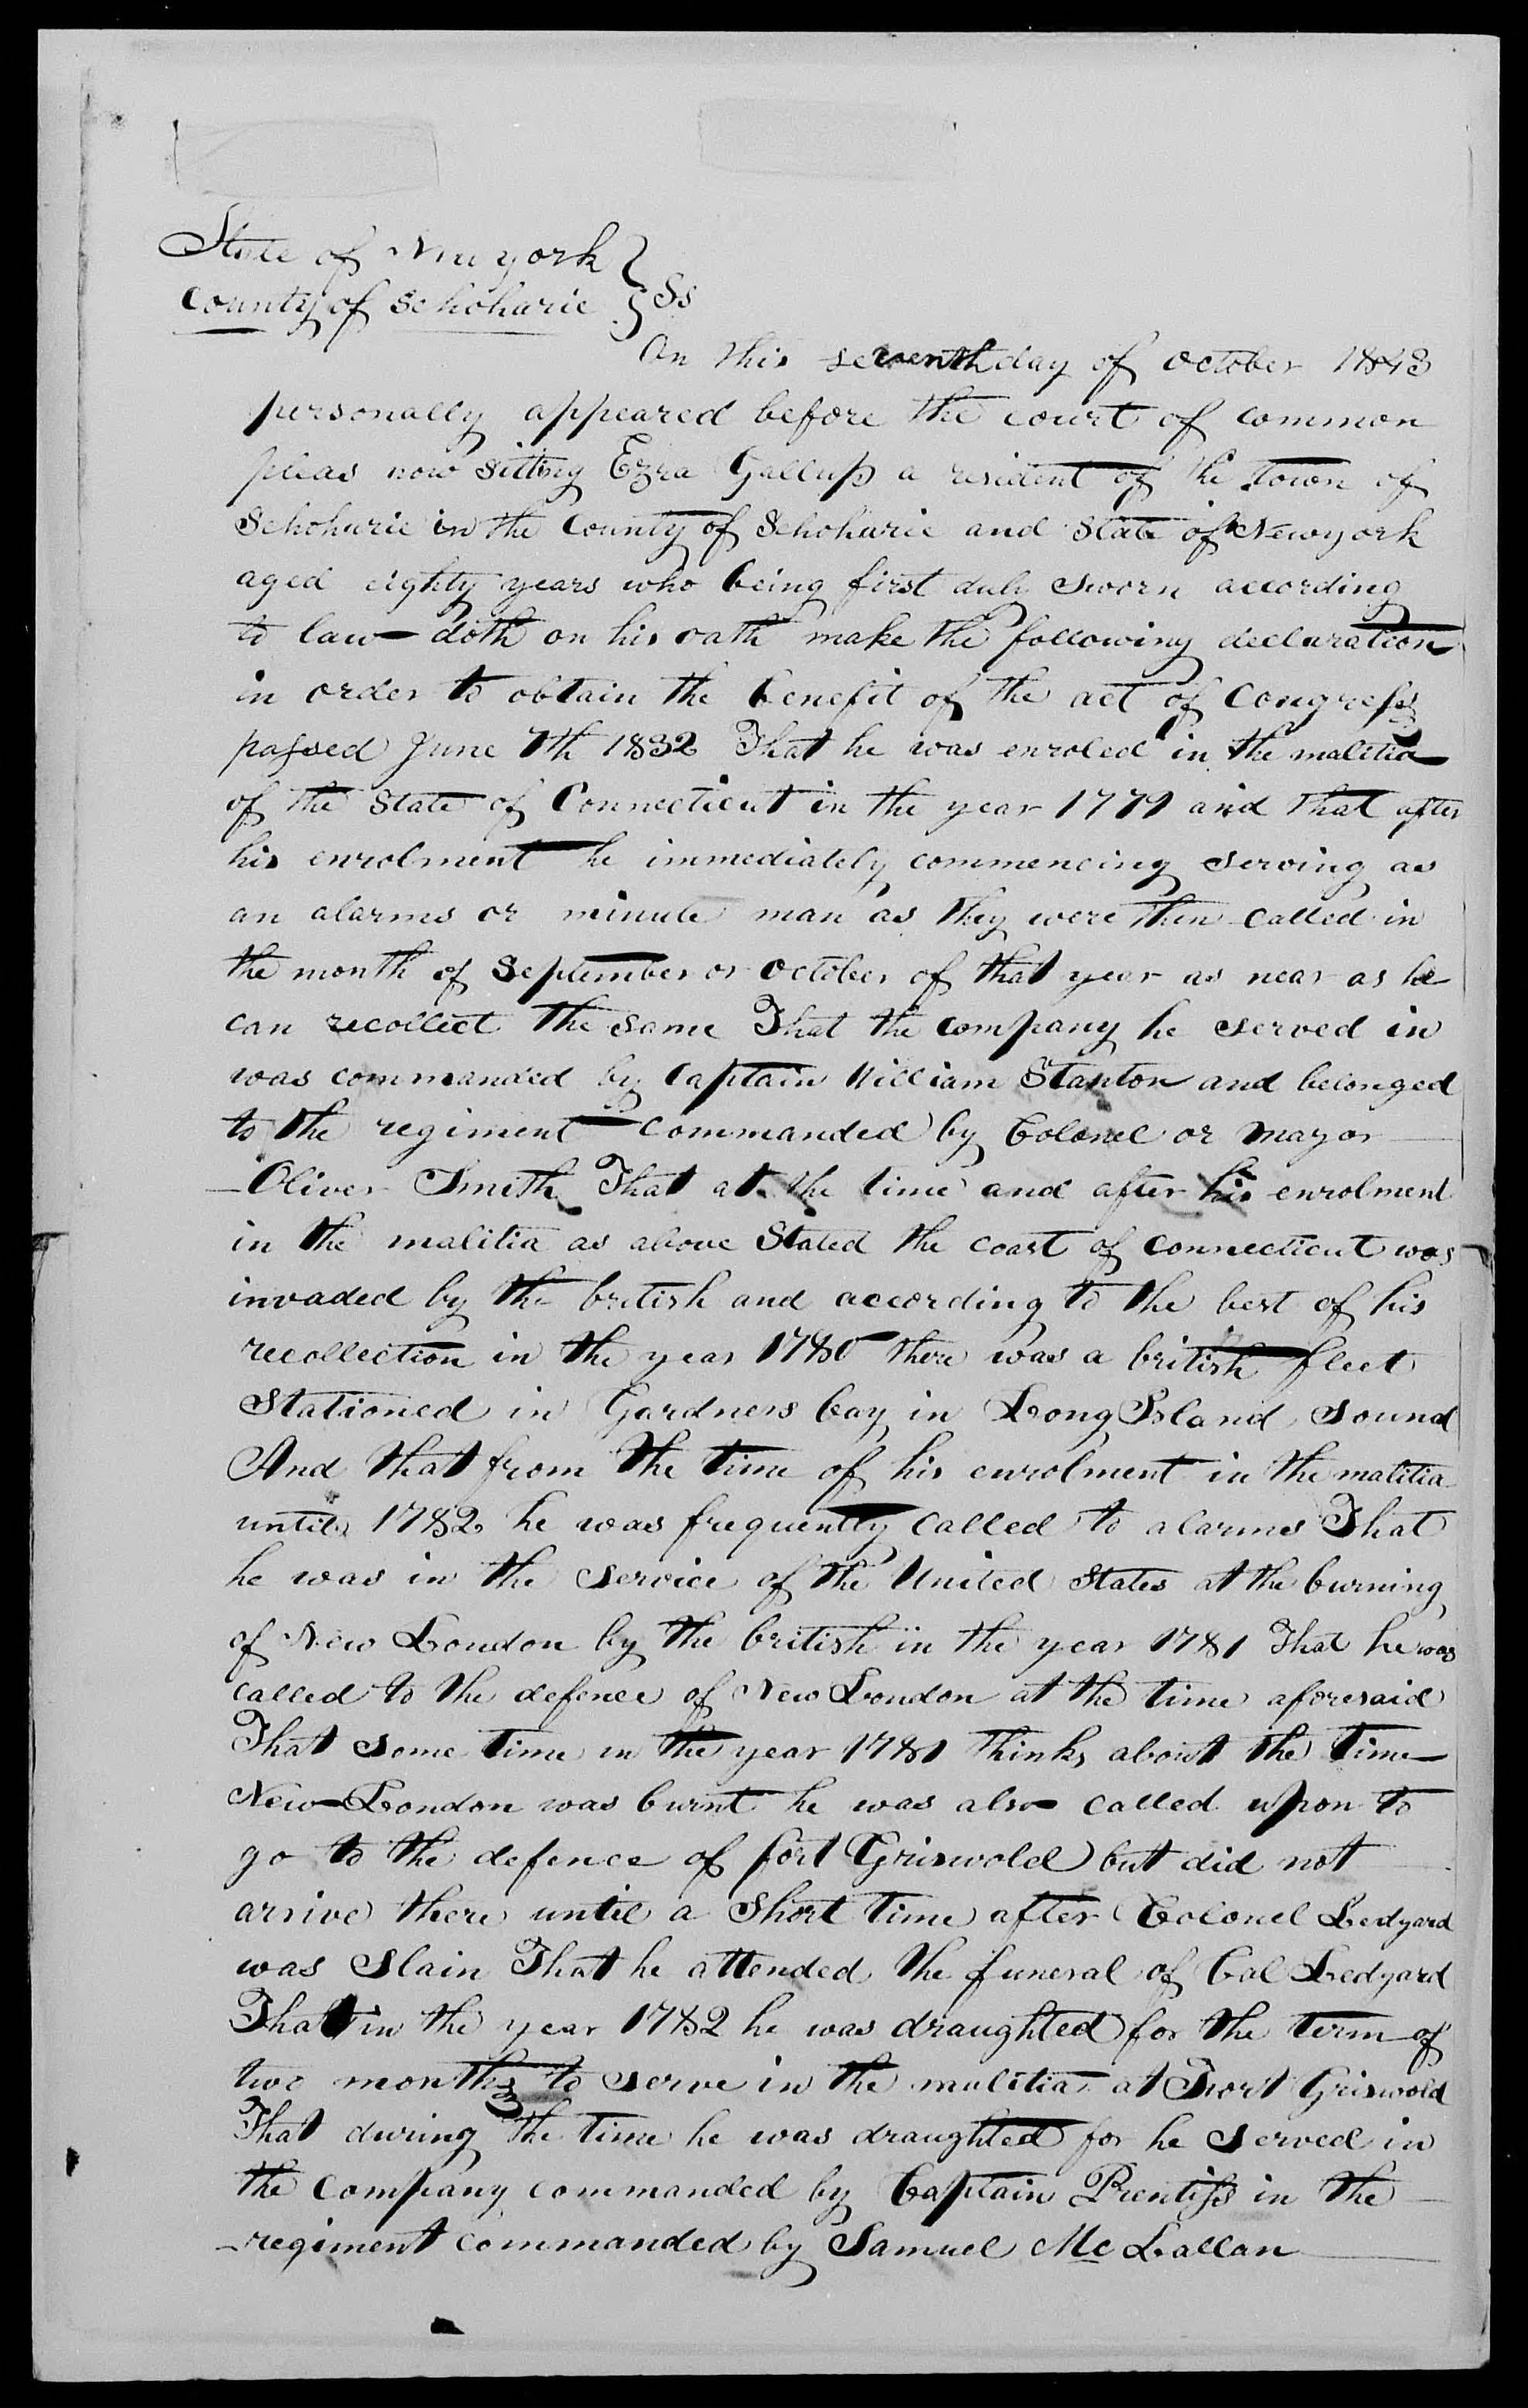 State of New york
County of Schoharie } Ss
On this seventh day of october 1843
personally appeared before the court of common
pleas now sitting Ezra Gallup a resident of the town of
Schoharie in the County of Schoharie and State of Newyork
aged eighty years who being first duly sworn according
to law doth on his oath make the following declaration
in order to obtain the benefit of the act of Congress
passed June 7th 1832 That he was enroled in the malitia
of the State of Connecticut in the year 1779 and that after
his enrolment he immediately commencing serving as
an alarms or minute man as they were then called in
the month of September or october of that year as near as he
can recollect the same That the company he served in
was commanded by Captain William Stanton and belonged
to the regiment commanded by Colonel or mayor
Oliver Smith That at the time and after his enrolment
in the malitia as above Stated the coast of connecticut was
invaded by the british and according to the best of his
recollection in the year 1780 there was a british fleet
Stationed in Gardners bay in Long Island sound
And that from the time of his enrolment in the malitia
until 1782 he was frequently called to alarms That
he was in the service of the United States at the burning
of New London by the british in the year 1781 That he was
called to the defence of New London at the time aforesaid
That some time in the year 1781 thinks about the time
New London was burnt he was also called upon to
go to the defence of fort Griswold but did not
arrive there until a short time after Colonel Ledyard
was slain That he attended the funeral of Col Ledyard
That in the year 1782 he was draughted for the term of
two months to serve in the malitia at Fort Griswold
That during the time he was draughted for he served in
the company commanded by Captain Prentiss in the
regiment commanded by Samuel Mc Lallan